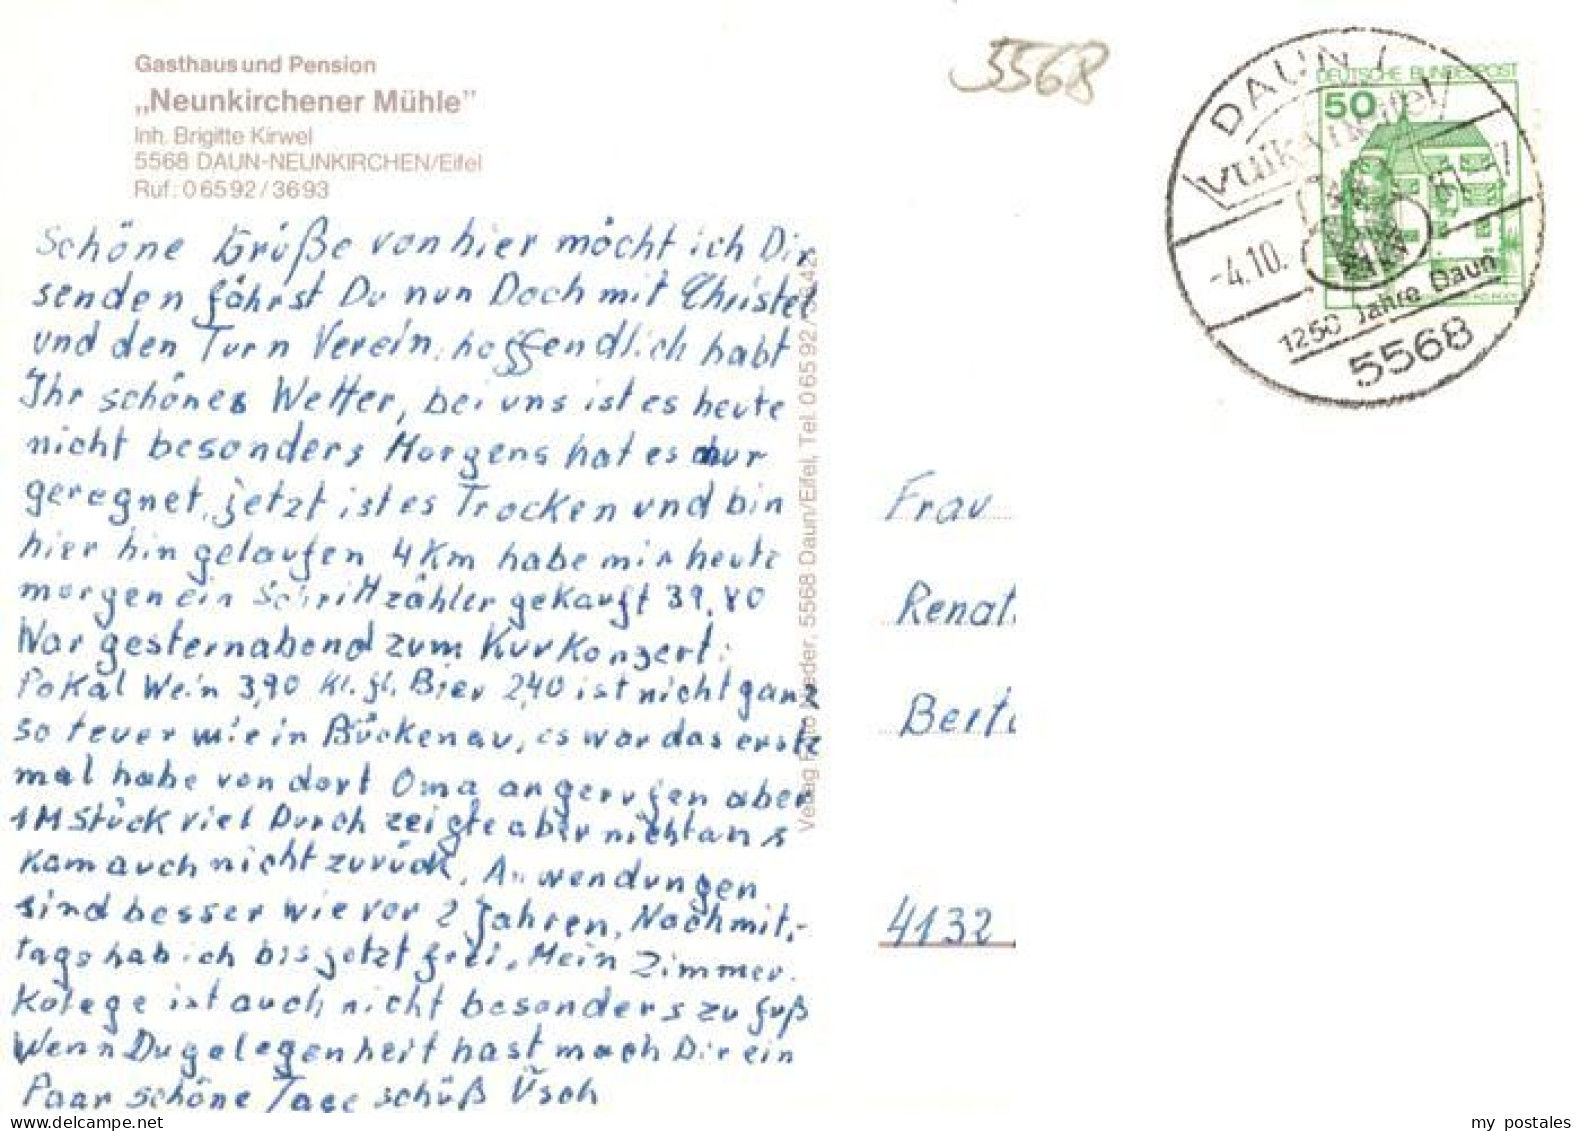 Gasthaus und Pension
„Neunkirchener Mühle"
Inh. Brigitte Kirwel
5568 DAUN-NEUNKIRCHEN/Eifel
Ruf: 0 65 92 / 36 93
Schöne Grüße von hier möcht ich Dir
senden fährst Du nun Doch mit Christel
und den Turn Verein, hoffendlich habt
Ihr schönes Wetter, bei uns ist es heute
nicht besonders Morgens hat es nur
geregnet, jetzt ist es Trocken und bin
hier hin gelaufen 4 Km habe mir heute
morgen ein Schrittzähler gekauft 39,80
War gesternabend zum Kurkonzert:
Pokal Wein 3,90 kl. gl. Bier 2,40 ist nicht ganz
so teuer wie in Brückenau, es war das erste
mal habe von dort Oma angerufen aber
1 M Stück viel Durch zeigte aber nicht an
Kam auch nicht zurück. Anwendungen
sind besser wie vor 2 Jahren, Nachmit-
tags hab ich bis jetzt frei. Mein Zimmer.
Kolege ist auch nicht besonders zu fuß
Wenn Du gelegenheit hast mach Dir ein
Paar schöne Tage schüß Üsch
Verlag Foto Nieder, 5568 Daun/Eifel, Tel. 0 65 92 /
5568
DEUTSCHE BUNDESPOST
50
DAUN /
Vulkaneifel
-4.10.
1250 Jahre Daun
5568
Frau
Renat
Bert
4132
my postales